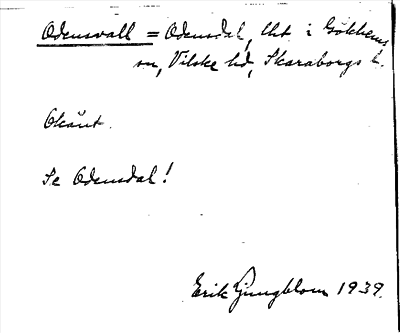 Odensvall = Odensdal, lht. i Gökhems
sn, Vilske hd, Skaraborgs l.
Okänt.
Se Odensdal!
Erik Ljungblom 1939.